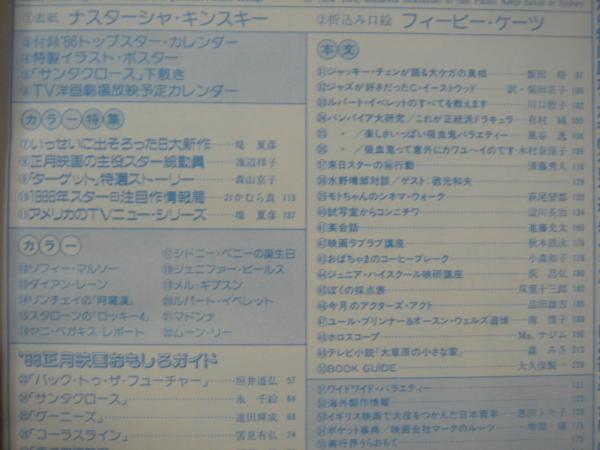 ①表紙 ナスターシャ・キンスキー
②折込み口絵 フィービー・ケーツ
③付録'86トップスター・カレンダー
④特製イラスト・ポスター
⑤「サンタクロース」下敷き
⑥TV洋画劇場放映予定カレンダー
カラー特集
⑦いっせいに出そろった8大新作 堤 夏彦
⑧正月映画の主役スター総動員 渡辺祥子
⑨「ターゲット」特選ストーリー 森山京子
⑩1986年スター注目作情報局 おかむら良 113
⑪アメリカのTVニュー・シリーズ 堤 夏彦 137
カラー
⑫ソフィー・マルソー
⑬ダイアン・レーン
⑭リンチェイの「阿羅漢」
⑮スタローンの「ロッキー4」
⑯ヤニ・ベガキス・レポート
⑰シドニー・ペニーの誕生日
⑱ジェニファー・ビールス
⑲メル・ギブスン
⑳ルパート・イベレット
㉑マドンナ
㉒ムーン・リー
'86正月映画おもしろガイド
㉓「バック・トゥ・ザ・フューチャー」 垣井道弘 57
㉔「サンタクロース」 永 千絵 64
㉕「グーニーズ」 遠田輝成 68
㉖「コーラスライン」 筈見有弘 74
本文
㉛ジャッキー・チェンが語る大ケガの真相 飯田 格 97
㉜ジャズが好きだったC・イーストウッド 訳・柴田京子 100
㉝ルパート・イベレットのすべてを教えます 川口敦子 106
㉞バンパイア大研究/これが正統派ドラキュラ 有村 純 105
㉟ 〃 /楽しさいっぱい吸血鬼バラエティー
㊱ 〃 /吸血鬼って意外にカワユ〜イのです 木村奈保子
㊲来日スターの㊙行動 須藤秀人
㊳水野晴郎対談/ゲスト:徳光和夫 129
㊴モトちゃんのシネマ・ウォーク 萩尾望都 133
㊵試写室からコンニチワ 淀川長治 143
㊶英会話 進藤光太 165
㊷映画ラブラブ講座 秋本鉄次
㊸おばちゃまのコーヒーブレーク 小森和子
㊹ジュニア・ハイスクール映研講座 荻 昌弘
㊺ぼくの採点表 双葉十三郎
㊻今月のアクターズ・アクト 品田雄吉
㊼ユール・ブリンナー&オースン・ウェルズ追悼 南 俊子
㊽ホロスコープ Ms. ナジム
㊾テレビ小説「大草原の小さな家」 森 みさ 210
㊿BOOK GUIDE 大久保賢一
ワイドワイド・バラエティー 121
海外製作情報
イギリス映画で大役をつかんだ日本青年 恩田トキ子
ポケット事典/映画会社マークのルーツ 175
興行界うらおもて